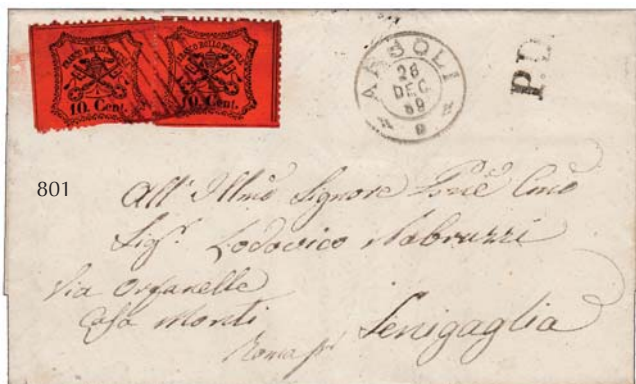 FRANCO BOLLO POSTALE
10. Cent.
FRANCO BOLLO POSTALE
10. Cent.
ARSOLI
28
DEC
69
P.D.
801
All' Illmo Signore
Sigr. Lodovico Nabruzzi
Via Orfanelle
Casa Monti
Roma per Senigaglia